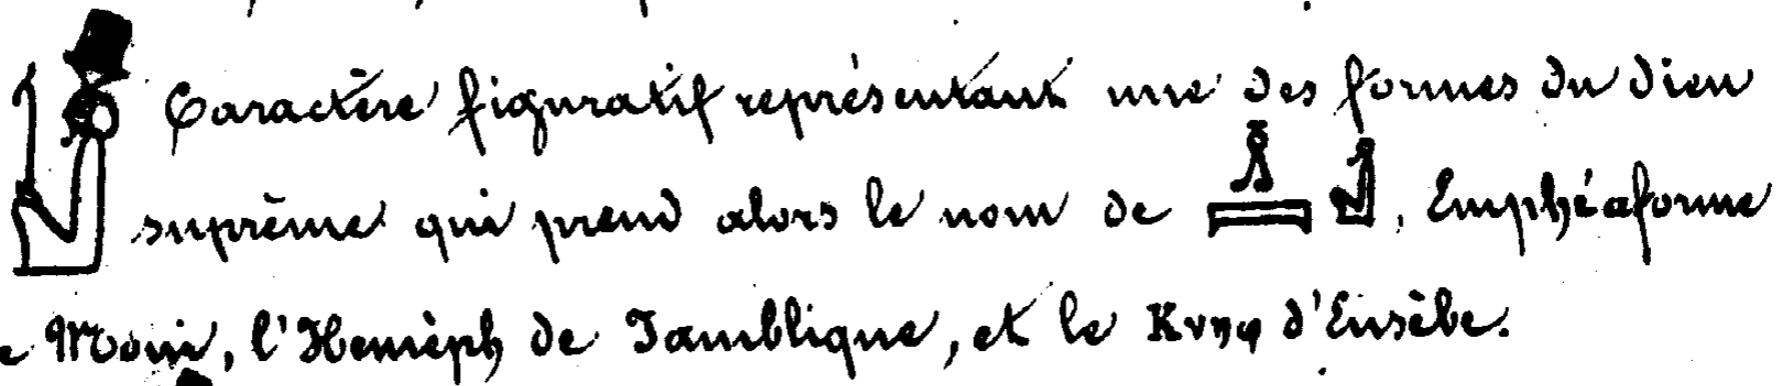 Caractère figuratif représentant une des formes du dieu
suprême qui prend alors le nom de , Emphéaforme
e Moui, l'Hemèph de Jamblique, et le Κνηφ d'Eusèbe.